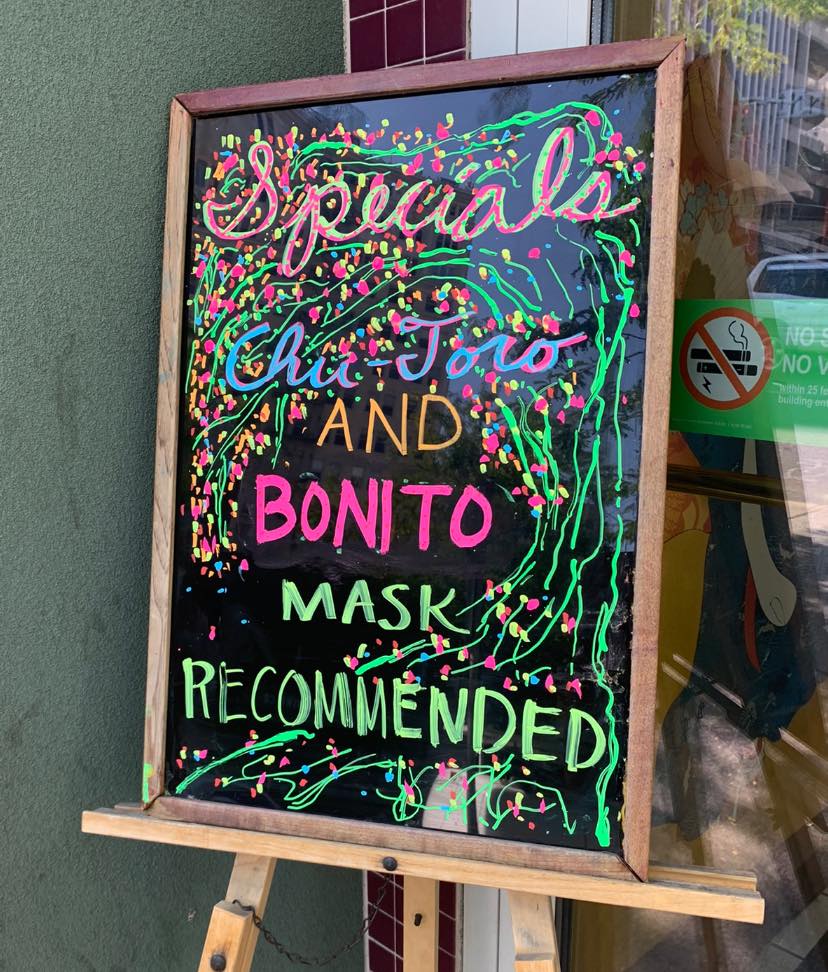 Specials
Chu-Toro
AND
BONITO
MASK
RECOMMENDED
NO
NO
within 25
building